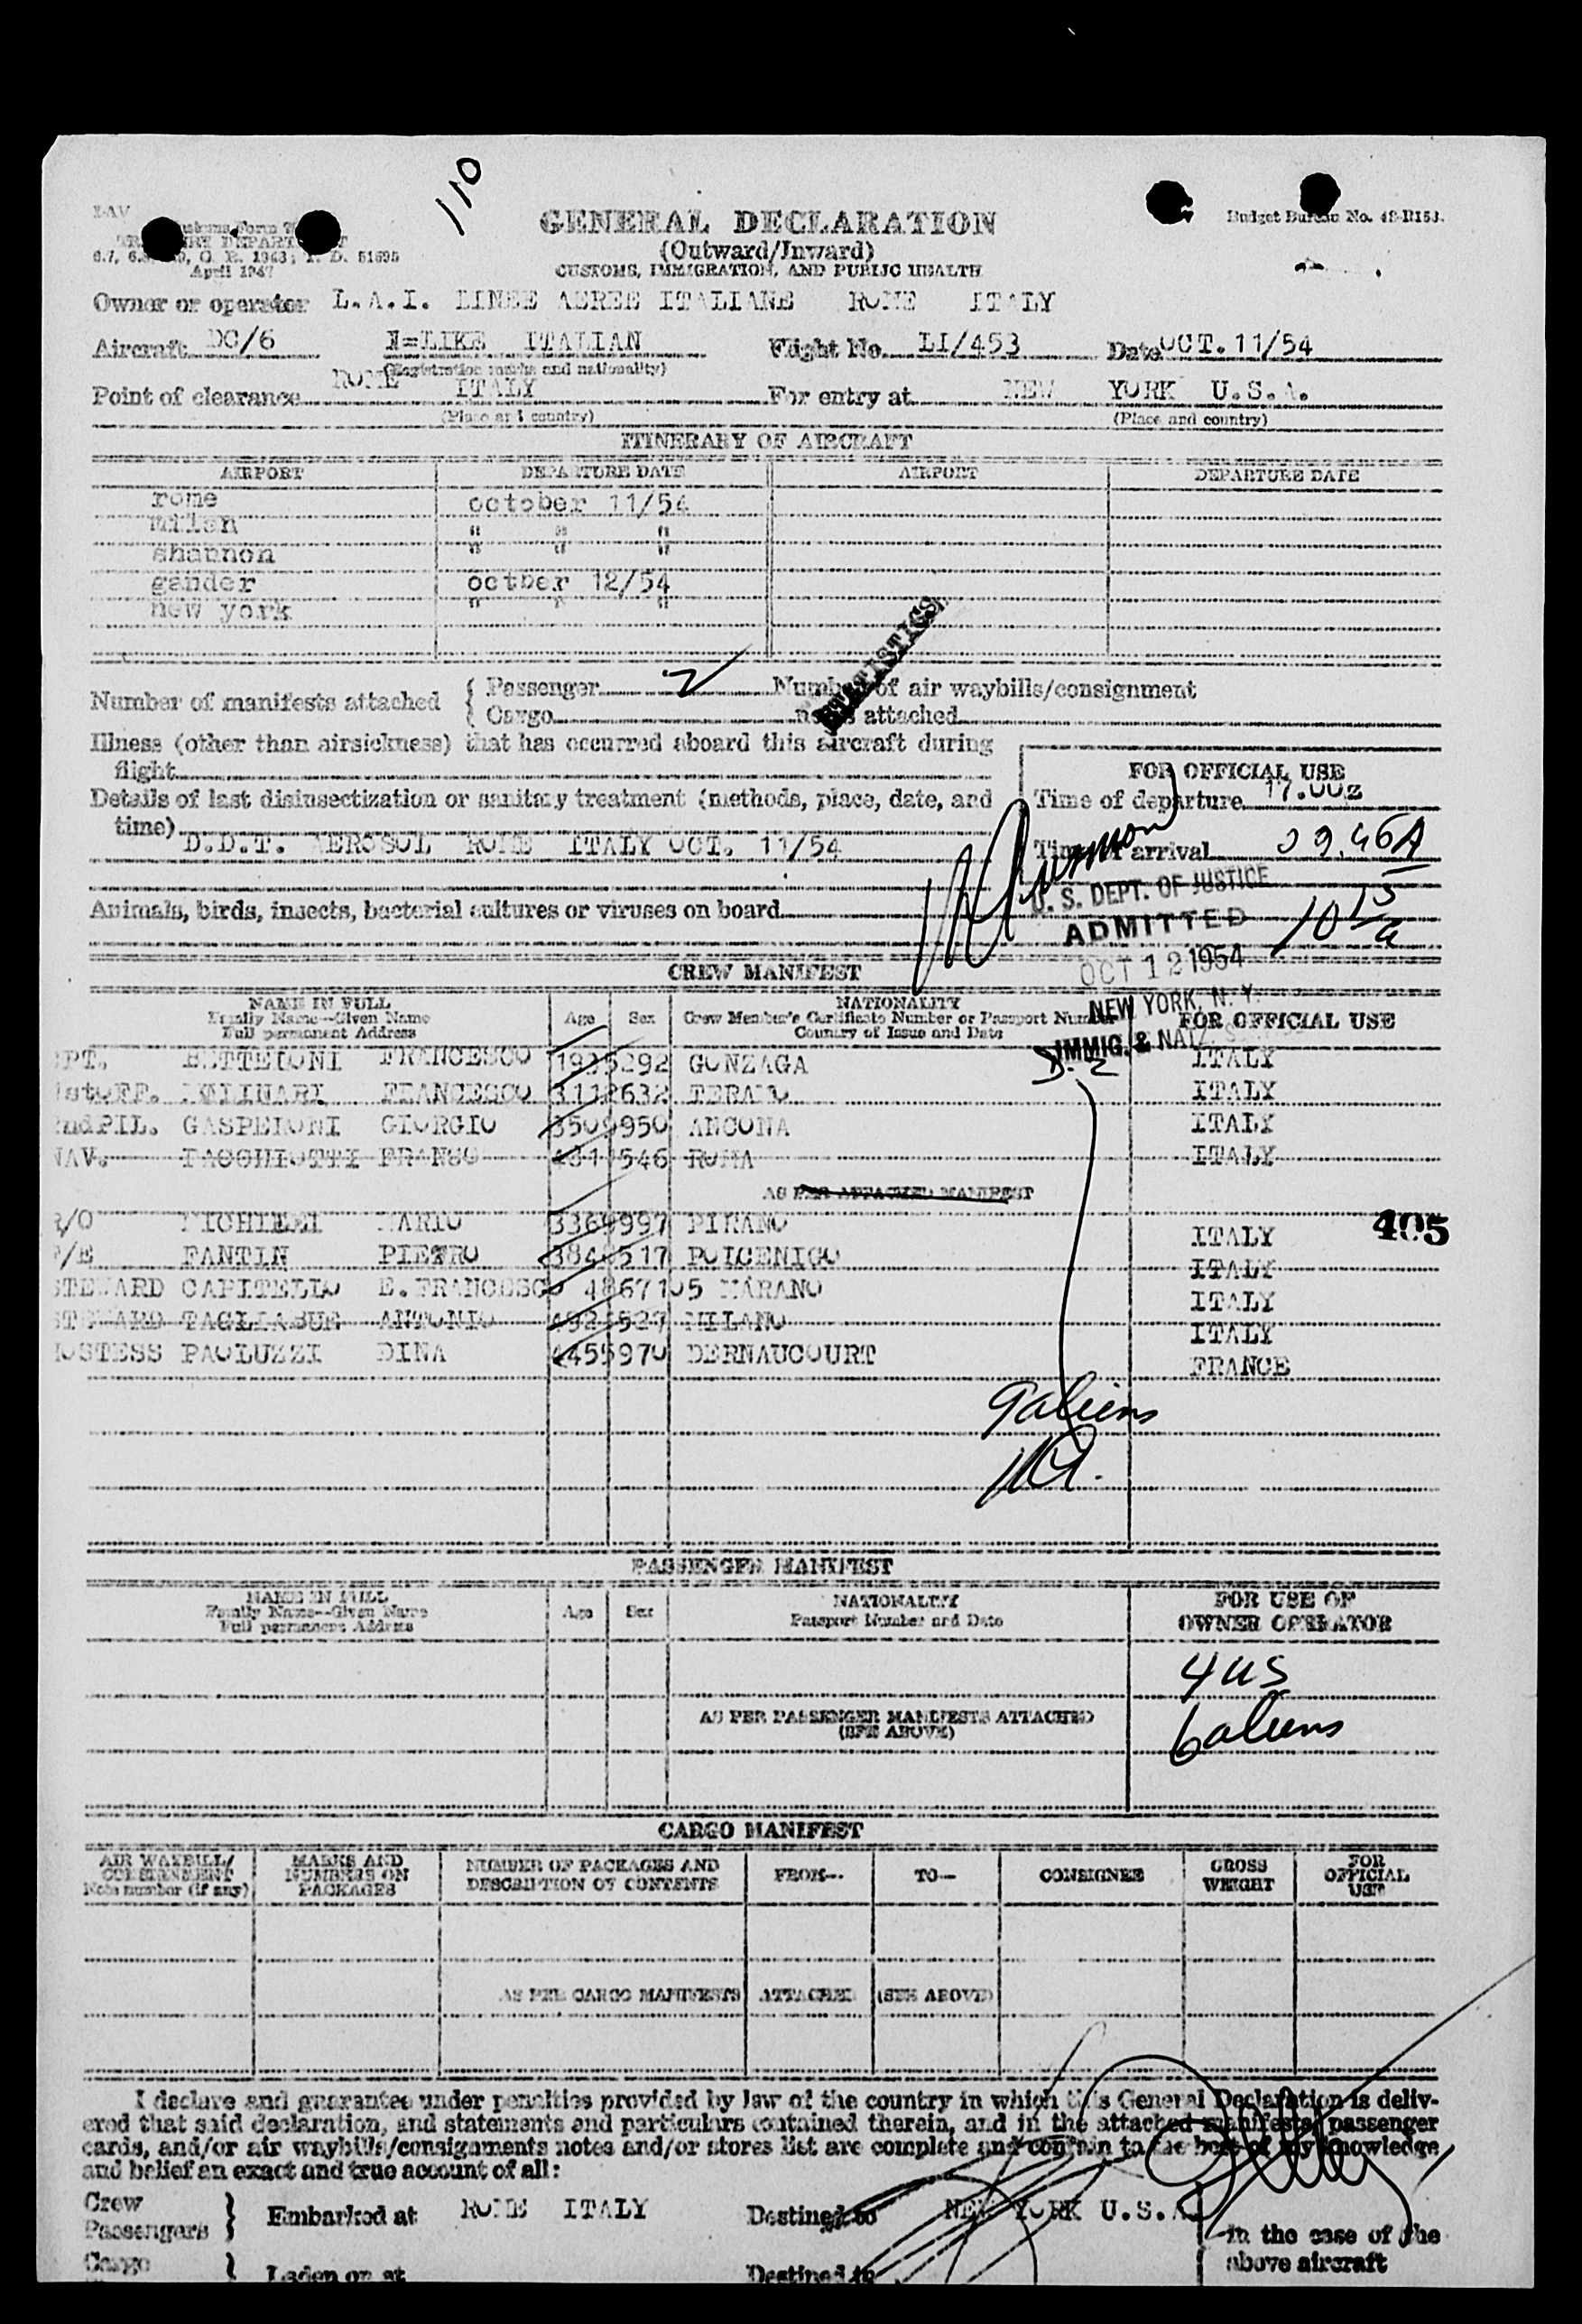 110
GENERAL DECLARATION
(Outward/Inward)
CUSTOMS, IMMIGRATION, AND PUBLIC HEALTH
Budget Bureau No. 48-R153.
April 1947
Owner or operator L.A.I. LINEE AEREE ITALIANE ROME ITALY
Aircraft DC/6 I=LIKE ITALIAN Flight No. LI/453 Date OCT. 11/54
(Registration marks and nationality)
Point of clearance ROME ITALY For entry at NEW YORK U.S.A.
(Place and country) (Place and country)
ITINERARY OF AIRCRAFT
AIRPORT DEPARTURE DATE AIRPORT DEPARTURE DATE
rome october 11/54
milan " " "
shannon " " "
gander octber 12/54
new york " " "
STATISTICS
Number of manifests attached { Passenger 2 Number of air waybills/consignment
Cargo notes attached
Illness (other than airsickness) that has occurred aboard this aircraft during
flight
FOR OFFICIAL USE
Details of last disinsectization or sanitary treatment (methods, place, date, and
time) D.D.T. AEROSOL ROME ITALY OCT. 11/54
Time of departure 17.00z
Time of arrival 09.46A
Animals, birds, insects, bacterial cultures or viruses on board
U. S. DEPT. OF JUSTICE
ADMITTED
OCT 12 1954
NEW YORK, N. Y.
IMMIG. & NATZ.
10 15/a
D-2
CREW MANIFEST
NAME IN FULL Age Sex NATIONALITY FOR OFFICIAL USE
Family Name--Given Name Crew Member's Certificate Number or Passport Number
Full permanent Address Country of Issue and Date
PT. BETTELONI FRANCESCO 1935292 GONZAGA ITALY
1stOFF. MOLINARI FRANCESCO 3112632 TERAMO ITALY
ndPIL. GASPERONI GIORGIO 3509950 ANCONA ITALY
NAV. TACCHIOTTI FRANCO 546 ROMA ITALY
AS PER ATTACHED MANIFEST
R/O MICHIELI MARIO 3369997 PIRANO ITALY
405
F/E FANTIN PIETRO 517 POLCENIGO ITALY
STEWARD CAPITELLO E.FRANCESCO 4867105 MARANO ITALY
STEWARD TAGLIABUE ANTONIO 527 MILANO ITALY
HOSTESS PAOLUZZI DINA 4455970 DERNAUCOURT FRANCE
9 aliens
PASSENGER MANIFEST
NAME IN FULL Age Sex NATIONALITY FOR USE OF
Family Name--Given Name Passport Number and Date OWNER OPERATOR
Full permanent Address
4 US
AS PER PASSENGER MANIFESTS ATTACHED
(SEE ABOVE)
6 aliens
CARGO MANIFEST
AIR WAYBILL/ MARKS AND NUMBER OF PACKAGES AND FROM-- TO-- CONSIGNEE GROSS FOR
CONSIGNMENT NUMBERS ON DESCRIPTION OF CONTENTS WEIGHT OFFICIAL
Note number (if any) PACKAGES USE
AS PER CARGO MANIFESTS ATTACHED (SEE ABOVE)
I declare and guarantee under penalties provided by law of the country in which this General Declaration is deliv-
ered that said declaration, and statements and particulars contained therein, and in the attached manifests, passenger
cards, and/or air waybills/consignments notes and/or stores list are complete and contain to the best of my knowledge
and belief an exact and true account of all:
Crew
Passengers } Embarked at ROME ITALY Destined to NEW YORK U.S.A.
in the case of the
Cargo } Laden on at Destined to above aircraft